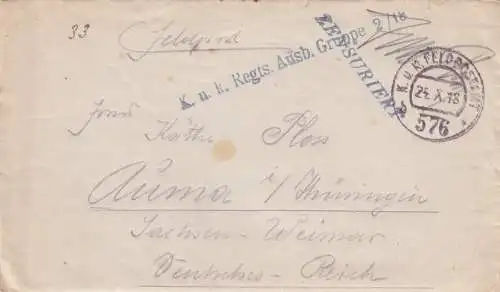 33
Feldpost
2/18
ZENSURIERT
K. u. k. Regts. Ausb. Gruppe
K. u. K. FELDPOSTAMT
b
24. X. 18
576
Käthe Ploss
Auma i/Thüringen
Sachsen-Weimar
Deutsches-Reich